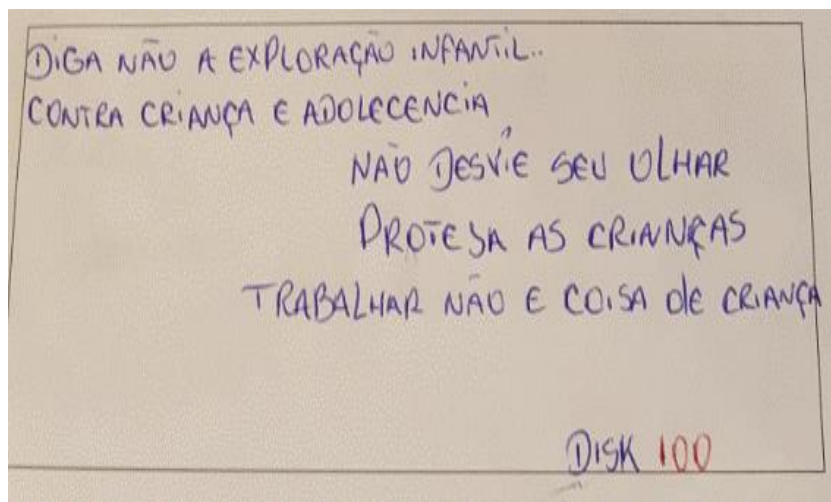 DIGA NÃO A EXPLORAÇÃO INFANTIL..
CONTRA CRIANÇA E ADOLECENCIA
NÃO DESVIE SEU OLHAR
PROTEJA AS CRIANNÇAS
TRABALHAR NÃO E COISA de CRIANÇA
DISK 100